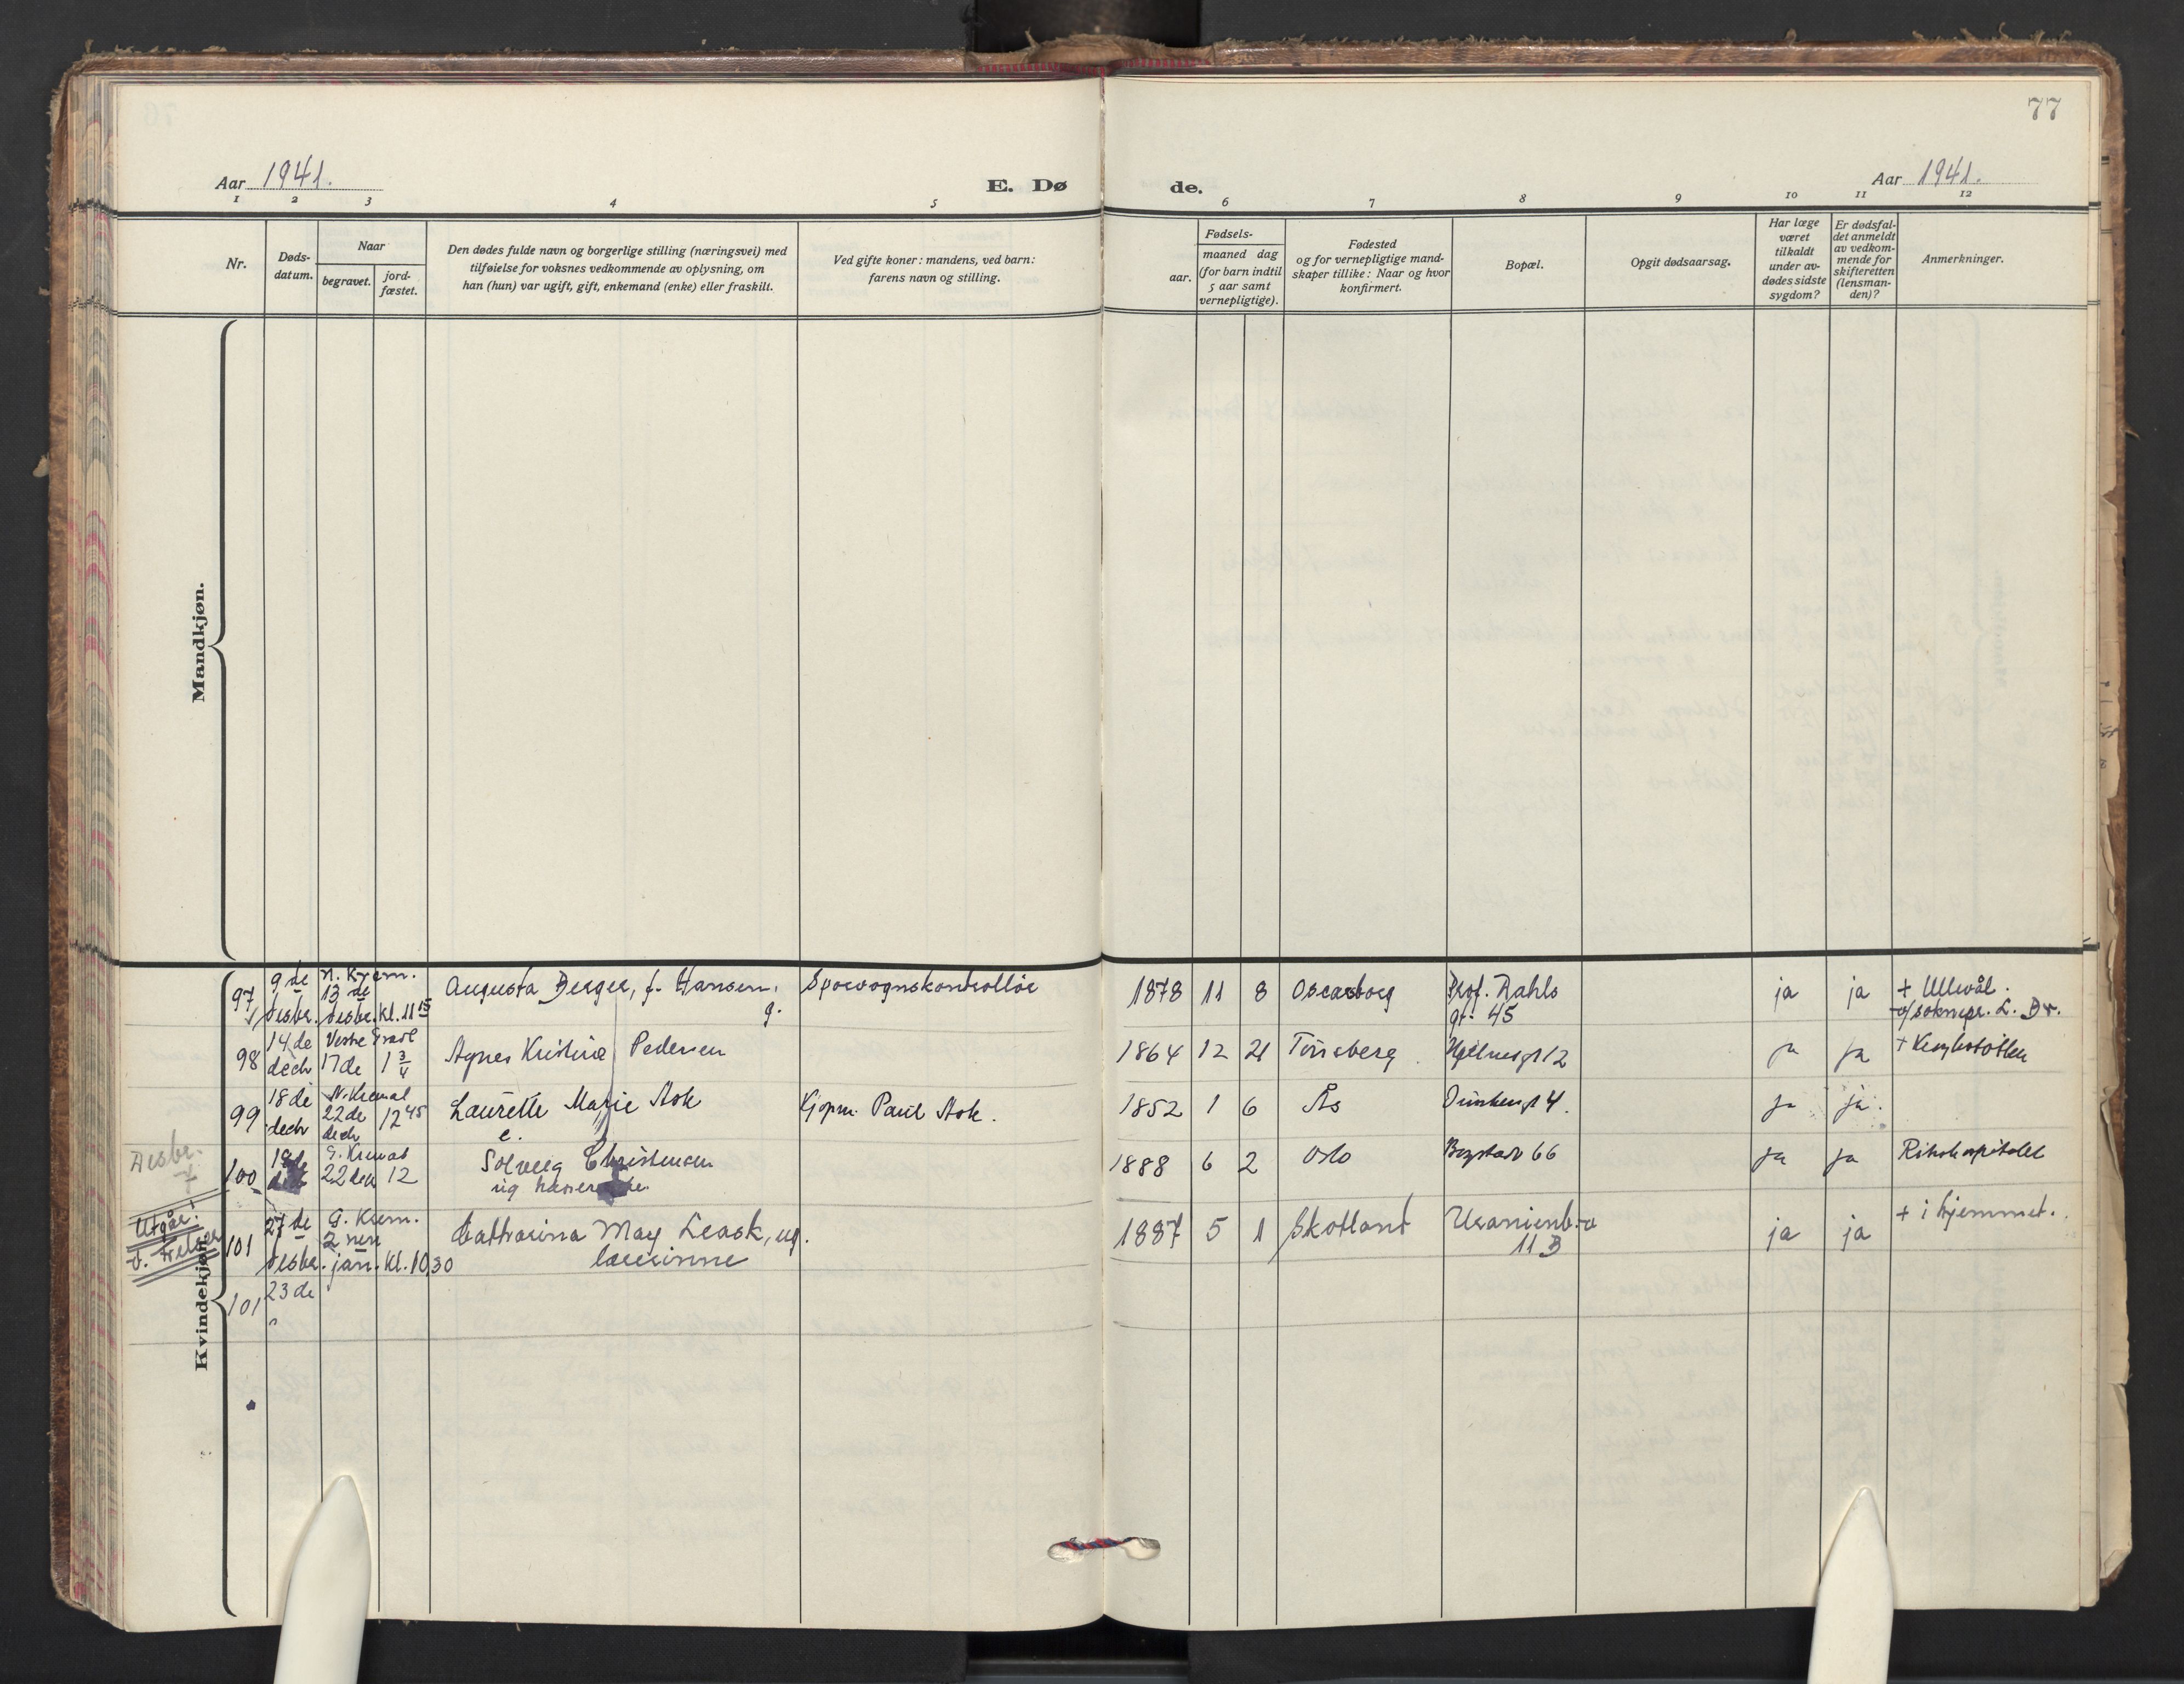 77
Aar 1941.
E. Dø
de.
Aar 1941.
1 2 3 4 5 6 7 8 9 10 11 12
Nr.
Døds-
datum.
Naar
begravet.
jord-
fæstet.
Den dødes fulde navn og borgerlige stilling (næringsvei) med
tilføielse for voksnes vedkommende av oplysning, om
han (hun) var ugift, gift, enkemand (enke) eller fraskilt.
Ved gifte koner: mandens, ved barn:
farens navn og stilling.
Fødsels-
aar.
maaned dag
(for barn indtil
5 aar samt
vernepligtige).
Fødested
og for vernepligtige mand-
skaper tillike: Naar og hvor
konfirmert.
Bopæl.
Opgit dødsaarsag.
Har læge
været
tilkaldt
under av-
dødes sidste
sygdom?
Er dødsfal-
det anmeldt
av vedkom-
mende for
skifteretten
(lensman-
den)?
Anmerkninger.
Mandkjøn.
Kvindekjøn.
9de N. Krem.
97 13de Augusta Berger, f. Hansen. Sporvognskontrollør 1878 11 8 Oscarsborg Prof. Dahls ja ja + Ullevål.
desbr. desbr. kl. 11 15 g. gt. 45 o/soknepr. L. Br.
14de Vestre Gravl
98 dech 17de 1 3/4 Agnes Kristine Pedersen 1864 12 21 Tønsberg 12 ja ja +
18de N. Kremat
99 dech 22de dech 12 45 Laurette Marie Ask Kjøpm. Paul Ask. 1852 1 6 Ås 4. ja ja.
e.
Desbr.
18de G. Kremat
100 22 dech 12 Solveig Christensen 1888 6 2 Oslo Bogstadv 66 ja ja Rikshospitalet
ug
Utgår!
27de G. Krem.
101 2nen Catharina May Leask, ug. 1887 5 1 Skotland Uranienb.v ja ja + i hjemmet.
desbr. jan. kl. 10,30 lærerinne 11 B
101 23de
"